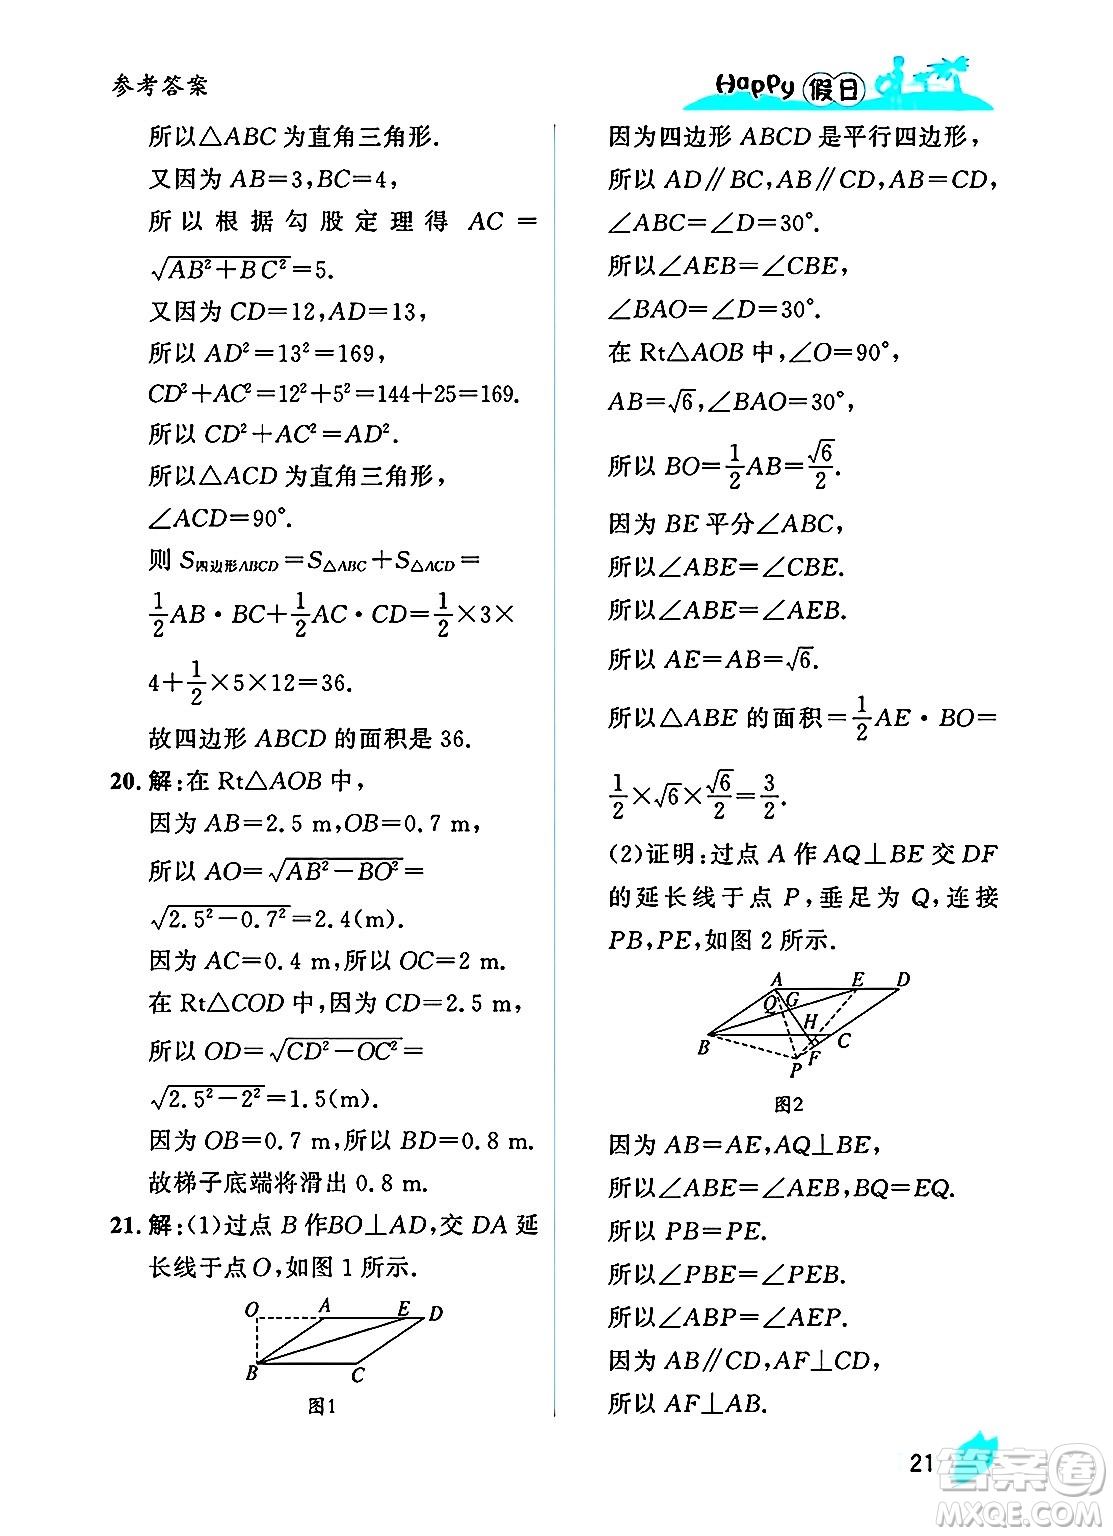 参考答案
Happy 假日
所以△ABC为直角三角形.
又因为 AB=3,BC=4,
所以根据勾股定理得 AC=
√(AB²+BC²)=5.
又因为 CD=12,AD=13,
所以 AD²=13²=169,
CD²+AC²=12²+5²=144+25=169.
所以 CD²+AC²=AD².
所以△ACD为直角三角形,
∠ACD=90°.
则 S四边形ABCD=S△ABC+S△ACD=
1/2 AB·BC+1/2 AC·CD=1/2×3×
4+1/2×5×12=36.
故四边形 ABCD 的面积是 36.
20. 解:在 Rt△AOB 中,
因为 AB=2.5 m,OB=0.7 m,
所以 AO=√(AB²-BO²)=
√(2.5²-0.7²)=2.4(m).
因为 AC=0.4 m,所以 OC=2 m.
在 Rt△COD 中,因为 CD=2.5 m,
所以 OD=√(CD²-OC²)=
√(2.5²-2²)=1.5(m).
因为 OB=0.7 m,所以 BD=0.8 m.
故梯子底端将滑出 0.8 m.
21. 解:(1)过点 B 作BO⊥AD,交 DA 延
长线于点 O,如图 1 所示.
O A E D
B C
图1
因为四边形 ABCD 是平行四边形,
所以 AD∥BC,AB∥CD,AB=CD,
∠ABC=∠D=30°.
所以∠AEB=∠CBE,
∠BAO=∠D=30°.
在 Rt△AOB 中,∠O=90°,
AB=√6,∠BAO=30°,
所以 BO=1/2 AB=√6/2.
因为 BE 平分∠ABC,
所以∠ABE=∠CBE.
所以∠ABE=∠AEB.
所以 AE=AB=√6.
所以△ABE 的面积=1/2 AE·BO=
1/2×√6×√6/2=3/2.
(2)证明:过点 A 作 AQ⊥BE 交 DF
的延长线于点 P,垂足为 Q,连接
PB,PE,如图 2 所示.
A E D
Q G
H
B C
P F
图2
因为 AB=AE,AQ⊥BE,
所以∠ABE=∠AEB,BQ=EQ.
所以 PB=PE.
所以∠PBE=∠PEB.
所以∠ABP=∠AEP.
因为 AB∥CD,AF⊥CD,
所以 AF⊥AB.
21
答案圈
MXQE.COM